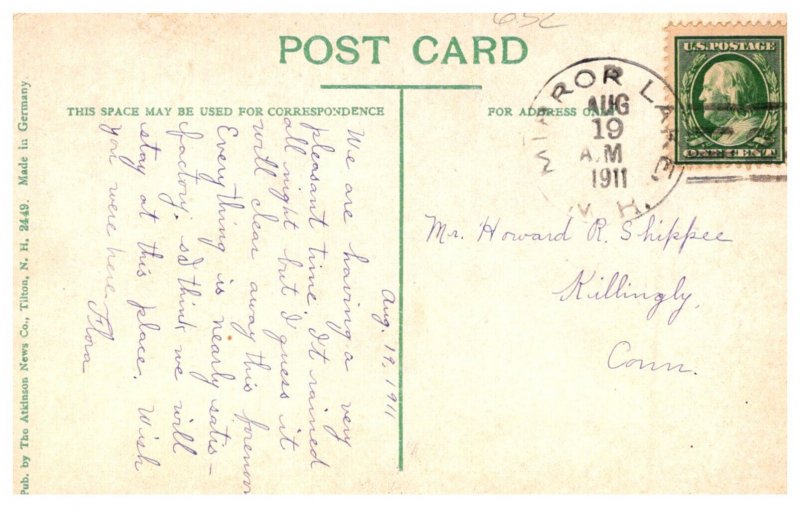 632
POST CARD
THIS SPACE MAY BE USED FOR CORRESPONDENCE
FOR ADDRESS ONLY
U.S. POSTAGE
ONE CENT
MIRROR LAKE
N. H.
AUG
19
A.M
1911
Aug. 19, 1911
We are having a very
pleasant time. It rained
all night but I guess it
will clear away this forenoon
Everything is nearly satis-
factory. so I think we will
stay at this place. Wish
you were here Flora
Mr. Howard R. Shippee
Killingly,
Conn.
Pub. by The Atkinson News Co., Tilton, N. H. 2449. Made in Germany.